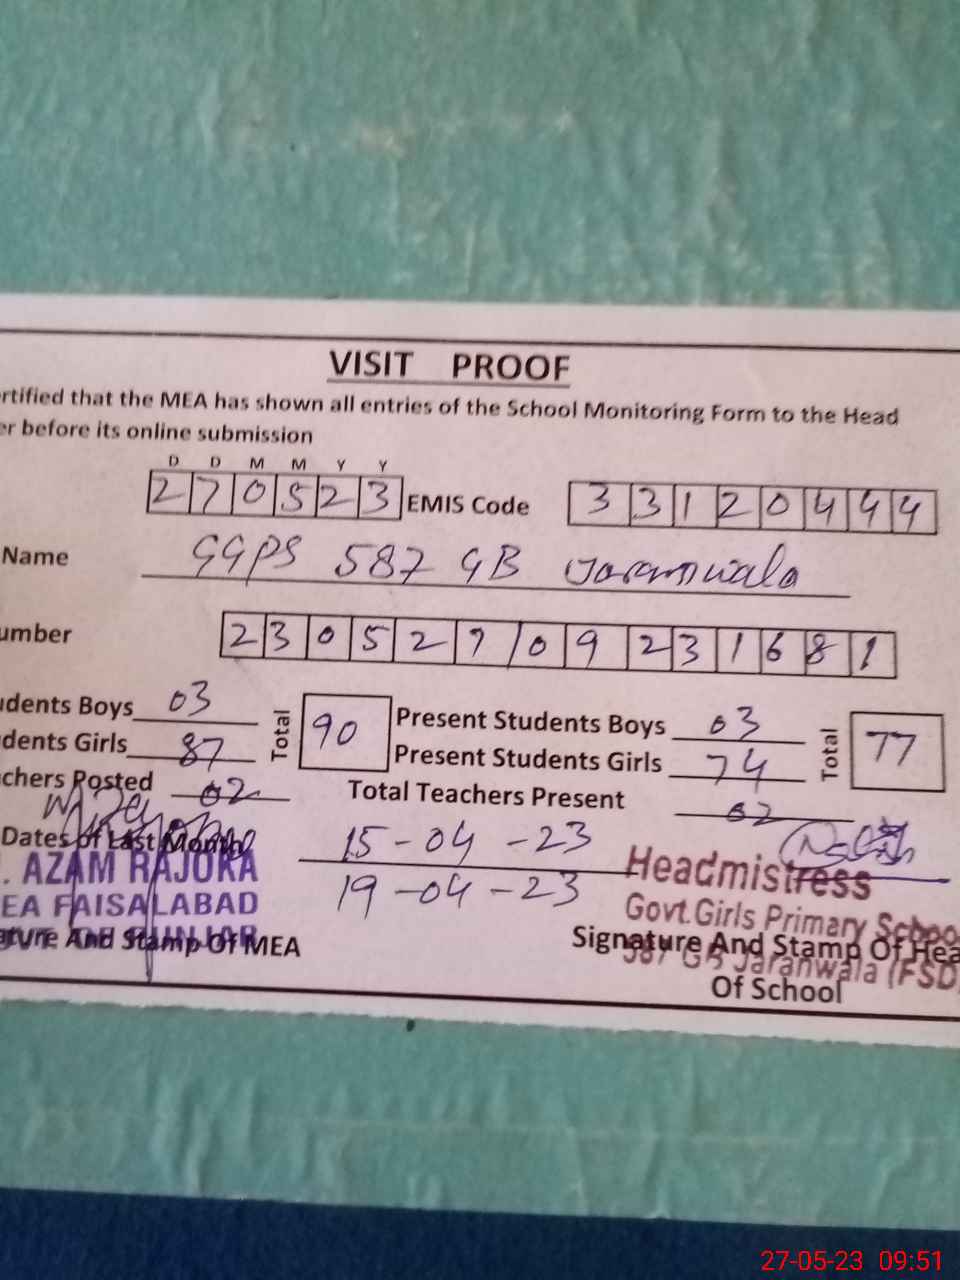 VISIT PROOF
rtified that the MEA has shown all entries of the School Monitoring Form to the Head
er before its online submission
D D M M Y Y
270523 EMIS Code 33120444
Name GGPS 587 GB Jaranwala
umber 23052709231681
udents Boys 03 Total 90 Present Students Boys 03 Total 77
dents Girls 87 Present Students Girls 74
chers Posted 02 Total Teachers Present 02
Dates of Last Month 15-04-23
19-04-23
. AZAM RAJOKA
EA FAISALABAD
ature And Stamp Of MEA
Headmistress
Govt.Girls Primary Schoo
587 GB Jaranwala (FSD)
Signature And Stamp Of Hea
Of School
27-05-23 09:51